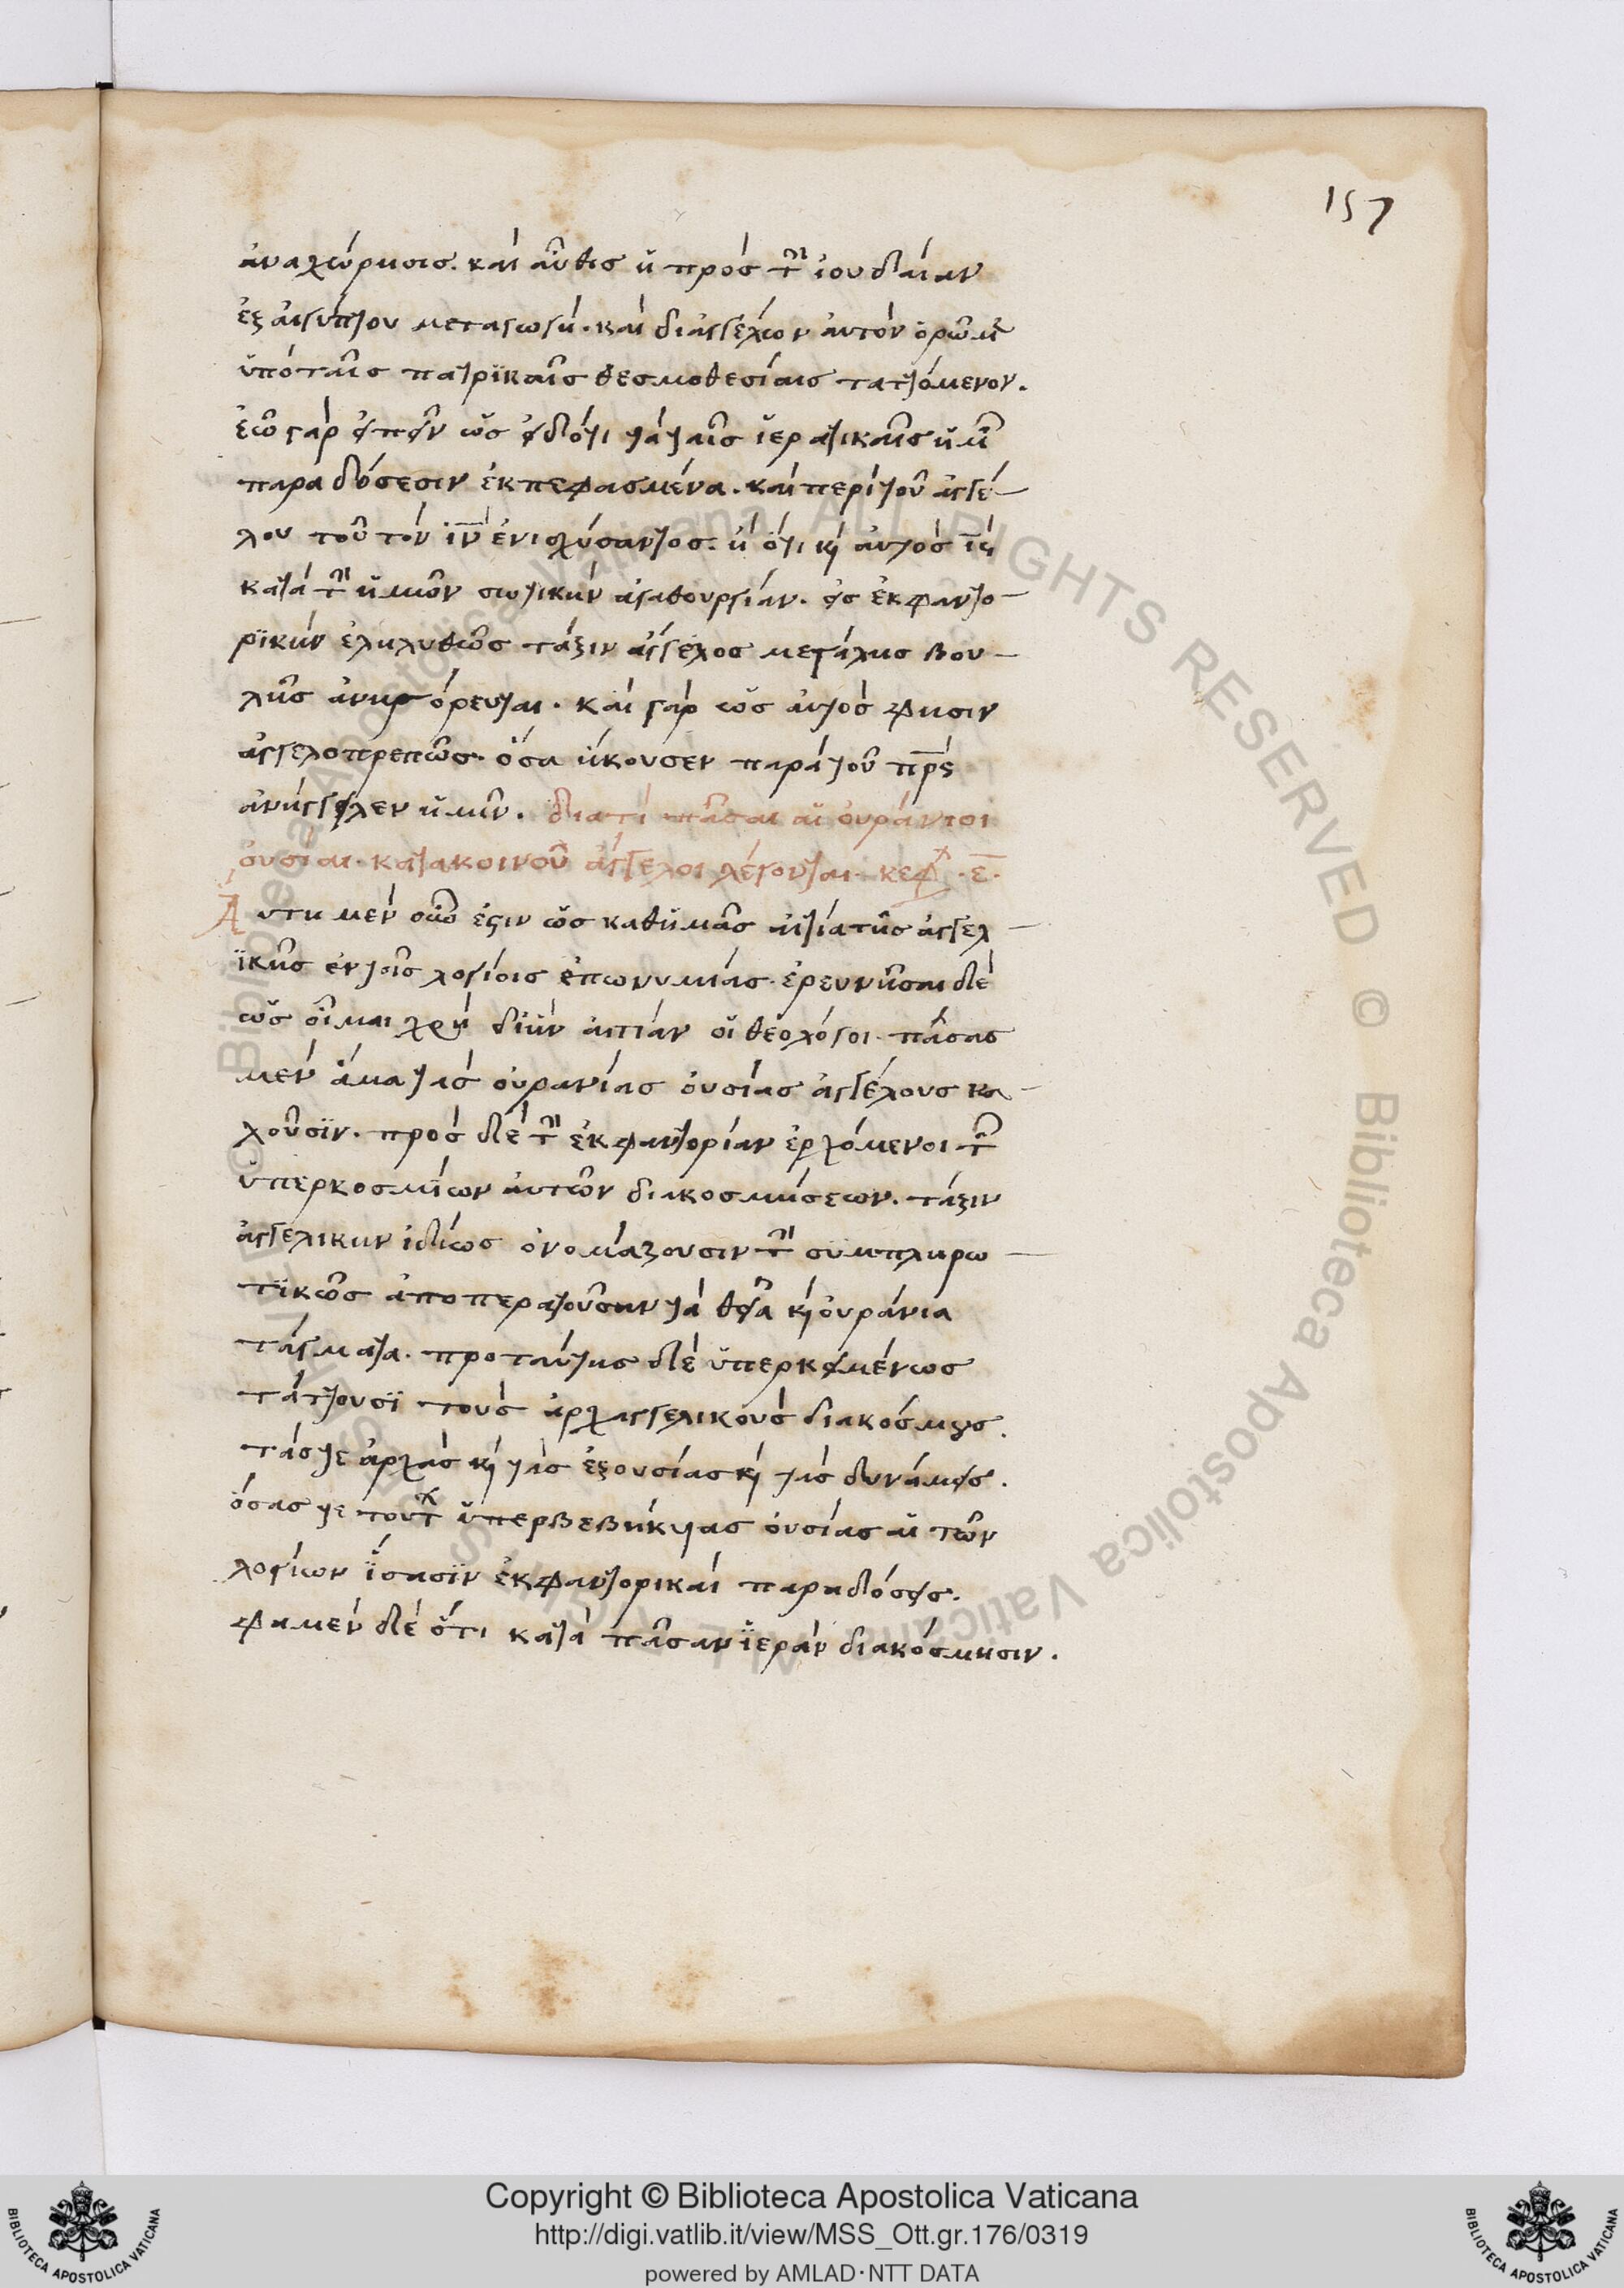 157
ἀναχώρησις. καὶ αὖθις ἡ πρὸς τὴν ἰουδαίαν
ἐξ αἰγύπτου μεταγωγή. καὶ διἀγγέλων ἀυτὸν ὁρῶμεν
ὑπὸ ταῖς πατρϊκαῖς θεσμοθεσίαις ταττόμενον.
ἐῶ γὰρ εἰπεῖν ὡς εἰδότι τὰ ταῖς ἱερατικαῖς ἡμῶν
παραδόσεσιν ἐκπεφασμένα. καὶ περὶ τοῦ ἀγγέ–
λου τοῦ τὸν ἰν ἐνισχύσαντος. ἢ ὅτι κὶ ἀυτὸς ἰς
κατὰ τὴν ἡμῶν σωτικὴν ἀγαθουργίαν. εἰς ἐκφαντο–
ρϊκὴν ἐληλυθὼς τάξιν ἄγγελος μεγάλης βου–
λῆς ἀνηγόρευται. καὶ γὰρ ὡς ἀυτός φησιν
ἀγγελοπρεπῶς. ὅσα ἤκουσεν παρὰ τοῦ πρς
ἀνήγγειλεν ἡμῖν. διατί πᾶσαι αἱ ὀυράνιοι
ὀυσίαι. κατακοινοῦ ἄγγελοι λέγονται. κεφ. ε.
Ἀυτη μὲν οὖν ἐστιν ὡς καθἡμᾶς αἰτία τῆς ἀγγελ–
ϊκῆς ἐν τοῖς λογίοις ἐπωνυμίας. ἐρευνῆσαι δὲ
ὡς οἶμαι χρὴ διἣν αἰτίαν οἱ θεολόγοι. πάσας
μὲν ἅμα τὰς ὀυρανίας ὀυσίας ἀγγέλους κα–
λοῦσϊν. πρὸς δὲ τὴν ἐκφαντορίαν ἐρχόμενοι τῶν
ὑπερκοσμίων ἀυτῶν διακοσμήσεων. τάξιν
ἀγγελικην ἰδίως ὀνομάζουσιν τὴν συμπληρω–
τϊκῶς ἀποπερατοῦσαν τὰ θεῖα κὶ ὀυράνια
τάγματα. προ ταύτης δὲ ὑπερκειμένως
τάττουσϊ τοὺς ἀρχαγγελικοὺς διακόσμους.
τάς τε ἀρχὰς κὶ τὰς ἐξουσίας κὶ τὰς δυνάμεις.
ὅσας τε τούτων ὑπερβεβηκυίας ὀυσίας αἱ τῶν
λογίων ἴσασϊν ἐκφαντορικαὶ παραδόσεις.
φαμὲν δὲ ὅτι κατὰ πᾶσαν ἱερὰν διακόσμησιν.
Copyright © Biblioteca Apostolica Vaticana
http://digi.vatlib.it/view/MSS_Ott.gr.176/0319
powered by AMLAD·NTT DATA